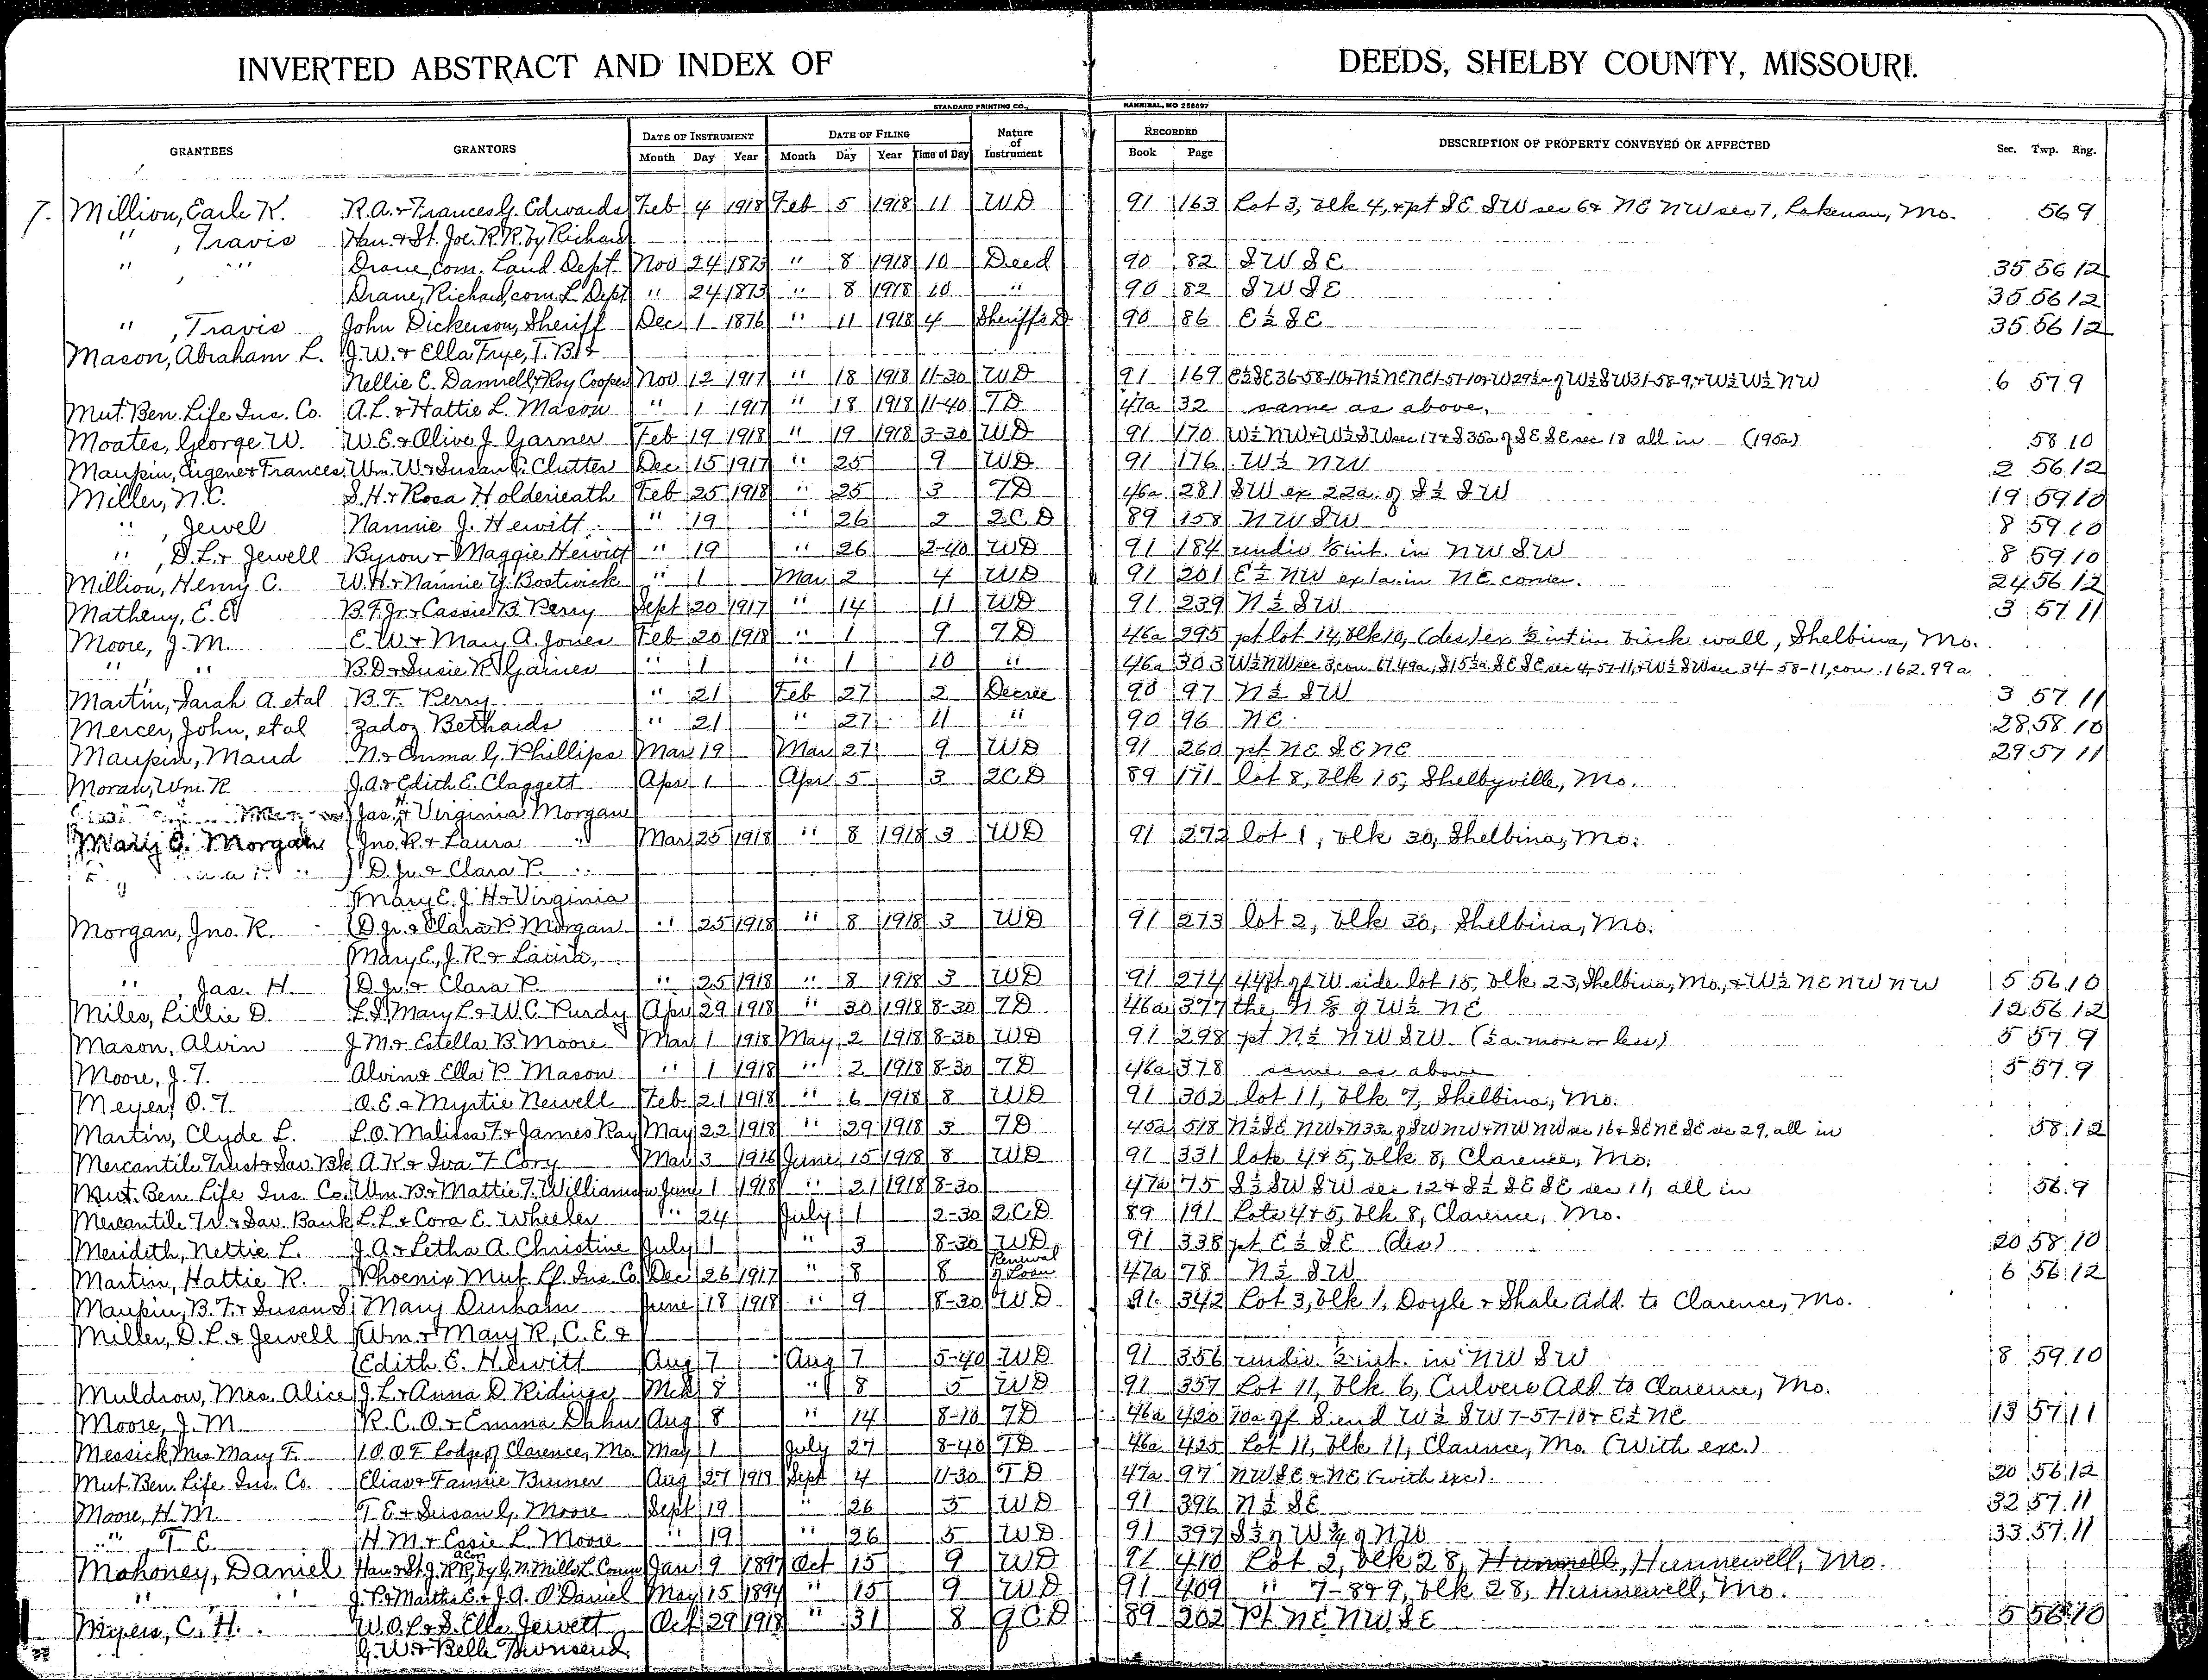 INVERTED ABSTRACT AND INDEX OF DEEDS, SHELBY COUNTY, MISSOURI.
STANDARD PRINTING CO., HANNIBAL, MO 258697
GRANTEES GRANTORS DATE OF INSTRUMENT DATE OF FILING Nature of Instrument RECORDED DESCRIPTION OF PROPERTY CONVEYED OR AFFECTED Sec. Twp. Rng.
Month Day Year Month Day Year Time of Day Book Page
7. Million, Earle K. R.A. & Frances G. Edwards Feb 4 1918 Feb 5 1918 11 WD 91 163 Lot 3, blk 4, & pt SE SW sec 6 & NE NW sec 7, Lakenan, Mo. 56 9
" , Travis Han. & St. Joe. R.R. by Richard
" , " Drane, com. Land Dept. Nov 24 1873 " 8 1918 10 Deed 90 82 SW SE 35 56 12
Drane, Richard, com. L Dept " 24 1873 " 8 1918 10 " 90 82 SW SE 35 56 12
" , Travis John Dickerson, Sheriff Dec 1 1876 " 11 1918 4 Sheriff's D 90 86 E½ SE 35 56 12
Mason, Abraham L. J.W. & Ella Frye, T.B. &
Nellie E. Damrell & Roy Cooper Nov 12 1917 " 18 1918 11-30 WD 91 169 E½ SE 36-58-10 & N½ NE NE 1-57-10 & W 29½a of W½ SW 31-58-9, & W½ W½ NW 6 57 9
Mut. Ben. Life Ins. Co. A.L. & Hattie L. Mason " 1 1917 " 18 1918 11-40 TD 47a 32 same as above.
Moates, George W. W.E. & Olive J. Garner Feb 19 1918 " 19 1918 3-30 WD 91 170 W½ NW & W½ SW sec 17 & S 35a of SE SE sec 18 all in (195a) 58 10
Maupin, Eugene & Frances Wm. W. & Susan C. Clutter Dec 15 1917 " 25 9 WD 91 176 W½ NW 2 56 12
Miller, N.C. S.H. & Rosa Holderieath Feb 25 1918 " 25 3 TD 46a 281 SW ex 22a. of S½ SW 19 59 10
" , Jewel Nannie J. Hewitt " 19 " 26 2 2CD 89 158 NW SW 8 59 10
" , D.L. & Jewell Byron & Maggie Hewitt " 19 " 26 2-40 WD 91 184 undiv int. in NW SW 8 59 10
Million, Henry C. W.H. & Nannie Y. Bostwick " 1 Mar 2 4 WD 91 201 E½ NW ex 1a. in NE corner. 24 56 12
Matheny, E.E. B.F. Jr. & Cassie B. Perry Sept 20 1917 " 14 11 WD 91 239 N½ SW 3 57 11
Moore, J.M. E.W. & Mary A. Jones Feb 20 1918 " 1 9 TD 46a 295 pt lot 14, blk 10, (des) ex ½ int in brick wall, Shelbina, Mo.
" " B.D. & Susie R. Gaines " 1 " 1 10 " 46a 303 W½ NW sec 3, con 67.49a, S 15½a. SE SE sec 4-57-11, & W½ SW sec 34-58-11, con. 162.99a
Martin, Sarah A. etal B.F. Perry " 21 Feb 27 2 Decree 90 97 N½ SW 3 57 11
Mercer, John, etal Zadoz Bethards " 21 " 27 11 " 90 96 NE 28 58 10
Maupin, Maud N. & Emma G. Phillips Mar 19 Mar 27 9 WD 91 260 pt NE SE NE 29 57 11
Moran, Wm. R. J.A. & Edith E. Claggett Apr 1 Apr 5 3 2CD 89 171 lot 8, blk 15, Shelbyville, Mo.
Jas. H. & Virginia Morgan
Mary E. Morgan Jno. R. & Laura " Mar 25 1918 " 8 1918 3 WD 91 272 lot 1, blk 30, Shelbina, Mo.
D. Jr. & Clara P. "
Mary E. J.H. & Virginia
Morgan, Jno. R. D. Jr. & Clara P. Morgan " 25 1918 " 8 1918 3 WD 91 273 lot 2, blk 30, Shelbina, Mo.
Mary E., J.R. & Laura,
" , Jas. H. D. Jr. & Clara P. " 25 1918 " 8 1918 3 WD 91 274 44ft of W side lot 15, blk 23, Shelbina, Mo., & W½ NE NW NW 5 56 10
Miles, Lillie D. L.S. Mary L. & W.C. Purdy Apr 29 1918 " 30 1918 8-30 TD 46a 377 the N of W½ NE 12 56 12
Mason, Alvin J.M. & Estella B. Moore Mar 1 1918 May 2 1918 8-30 WD 91 298 pt N½ NW SW. (½a. more or less) 5 57 9
Moore, J.T. Alvin & Ella P. Mason " 1 1918 " 2 1918 8-30 TD 46a 378 same as above 5 57 9
Meyer, O.T. O.E. & Myrtie Newell Feb 21 1918 " 6 1918 8 WD 91 302 lot 11, blk 7, Shelbina, Mo.
Martin, Clyde L. L.O. Malissa F. & James Ray May 22 1918 " 29 1918 3 TD 45a 518 N½ SE NW & N 33a of SW NW & NW NW sec 16 & SE NE SE sec 29, all in 58 12
Mercantile Trust & Sav. Bk A.K. & Iva F. Cory Mar 3 1916 June 15 1918 8 WD 91 331 lots 4 & 5, blk 8, Clarence, Mo.
Mut. Ben. Life Ins. Co. Wm. B. & Mattie T. Williamson June 1 1918 " 21 1918 8-30 47a 75 S½ SW SW sec 12 & S½ SE SE sec 11, all in 56 9
Mercantile Tr. & Sav. Bank L.L. & Cora E. Wheeler " 24 July 1 2-30 2CD 89 191 Lots 4 & 5, blk 8, Clarence, Mo.
Meridith, Nettie L. J.A. & Letha A. Christine July 1 " 3 8-30 WD 91 338 pt E½ SE (des) 20 58 10
Martin, Hattie R. Phoenix Mut. Lf. Ins. Co. Dec 26 1917 " 8 8 Renewal of Loan 47a 78 N½ SW 6 56 12
Maupin, B.F. & Susan S. Mary Durham June 18 1918 " 9 8-30 WD 91 342 Lot 3, blk 1, Doyle & Shale Add. to Clarence, Mo.
Miller, D.L. & Jewell Wm. & Mary R., C.E. &
Edith E. Hewitt Aug 7 Aug 7 5-40 WD 91 356 undiv. int. in NW SW 8 59 10
Muldrow, Mrs. Alice J.L. & Anna D. Ridings Mch 8 " 8 5 WD 91 357 Lot 11, blk 6, Culvers Add. to Clarence, Mo.
Moore, J.M. R.C.O. & Emma Dahn Aug 8 " 14 8-10 TD 46a 420 70a off S. end W½ SW 7-57-10 & E½ NE 13 57 11
Messick, Mrs. Mary F. I.O.O.F. Lodge of Clarence, Mo. May 1 July 27 8-40 TD 46a 425 Lot 11, blk 11, Clarence, Mo. (With exc.)
Mut. Ben. Life Ins. Co. Elias & Fannie Bruner Aug 27 1918 Sept 4 11-30 TD 47a 97 NW SE & NE (with exc). 20 56 12
Moore, H.M. T.E. & Susan G. Moore Sept 19 " 26 5 WD 91 396 N½ SE 32 57 11
" , T.E. H.M. & Essie L. Moore " 19 " 26 5 WD 91 397 S½ of W¾ of NW 33 57 11
Mahoney, Daniel Han & St. J. RR, by G.N. Mills L. Comm Jan 9 1897 Oct 15 9 WD 91 410 Lot 2, blk 28, Hunnell, Hunnewell, Mo.
" , " J.P. & Martha E. & J.A. O'Daniel May 15 1894 " 15 9 WD 91 409 " 7-8&9, blk 28, Hunnewell, Mo.
Myers, C.H. W.O.L. & S. Ella Jewett Oct 29 1918 " 31 8 QCD 89 202 Pt. NE NW SE 5 56 10
G.W. & Belle Townsend